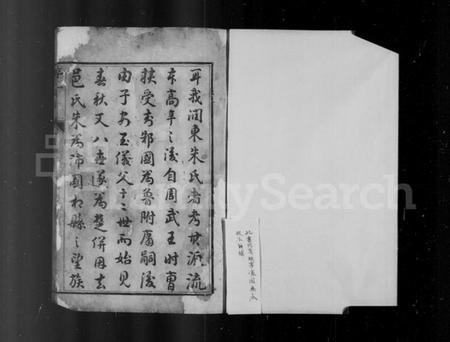 耳我澗東朱氏者考其派流
本高辛之後自周武王時曹
挾受封邾國為魯附庸嗣後
由子安至儀父十二世而始見
春秋又八世遂為楚併因去
邑氏朱為沛國相縣之望族
FamilySearch